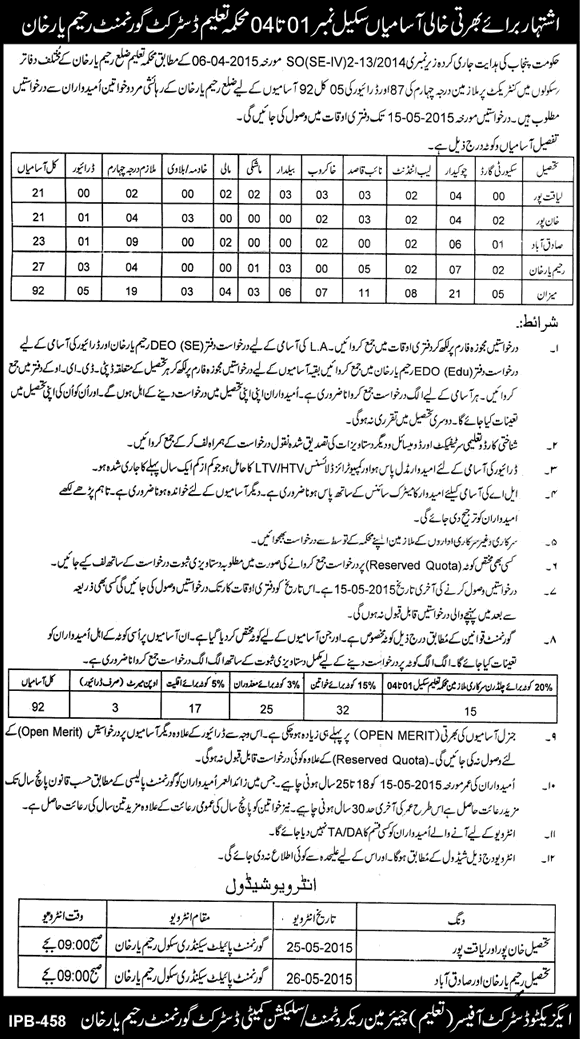 اشتہار برائے بھرتی خالی آسامیاں سکیل نمبر 01 تا 04 محکمہ تعلیم ڈسٹرکٹ گورنمنٹ رحیم یار خان
حکومت پنجاب کی ہدایت جاری کردہ زیر نمبری SO(SE-IV)2-13/2014 مورخہ 06-04-2015 کے مطابق محکمہ تعلیم ضلع رحیم یار خان کے مختلف دفاتر
رسکولوں میں کنٹریکٹ پر ملازمین درجہ چہارم کی 87 اور ڈرائیور کی 05 کل 92 آسامیوں کے لیے ضلع رحیم یار خان کے رہائشی مرد و خواتین امیدواران سے درخواستیں
مطلوب ہیں۔ درخواستیں مورخہ 15-05-2015 تک دفتری اوقات میں وصول کی جائیں گی۔
تفصیل آسامیاں و کوٹہ درج ذیل ہے۔
تحصیل سکیورٹی گارڈ چوکیدار لیب اٹنڈنٹ نائب قاصد خاکروب بیلدار ماشکی مالی خادمہ/بلاوی ملازم درجہ چہارم ڈرائیور کل آسامیاں
لیاقت پور 00 04 02 03 03 03 02 02 00 02 00 21
خان پور 02 04 02 03 02 00 00 00 03 04 01 21
صادق آباد 01 06 02 00 02 00 00 02 00 09 01 23
رحیم یار خان 02 07 02 05 00 03 01 00 00 04 03 27
میزان 05 21 08 11 07 06 03 04 03 19 05 92
شرائط:۔
۱۔ درخواستیں مجوزہ فارم پر لکھ کر دفتری اوقات میں جمع کروائیں۔ L.A کی آسامی کے لیے درخواست دفتر DEO (SE) رحیم یار خان اور ڈرائیور کی آسامی کے لیے
درخواست دفتر EDO (Edu) رحیم یار خان میں جمع کروائیں بقیہ آسامیوں کے لیے درخواستیں مجوزہ فارم پر لکھ کر ہر تحصیل کے متعلقہ ڈپٹی۔ ڈی۔ ای۔ او کے دفتر میں جمع
کروائیں۔ ہر آسامی کے لیے الگ درخواست جمع کروانا ضروری ہے۔ امیدواران اپنی اپنی تحصیل میں درخواست دینے کے اہل ہوں گے۔ اور اُن کو اُن کی اپنی تحصیل میں
تعینات کیا جائے گا۔ دوسری تحصیل میں تقرری نہ ہوگی۔
۲۔ شناختی کارڈ و تعلیمی سرٹیفکیٹ اور ڈومیسائل و دیگر دستاویزات کی تصدیق شدہ نقول درخواست کے ہمراہ لف کر کے جمع کروائیں۔
۳۔ ڈرائیور کی آسامی کے لئے امیدوار مڈل پاس ہو اور کمپیوٹرائزڈ لائسنس LTV/HTV کا حامل ہو جو کم از کم ایک سال پہلے کا جاری شدہ ہو۔
۴۔ ایل اے کی آسامی کیلئے امیدوار کا میٹرک سائنس کے ساتھ پاس ہونا ضروری ہے۔ دیگر آسامیوں کے لئے خواندہ ہونا ضروری ہے۔ تاہم پڑھے لکھے
امیدواران کو ترجیح دی جائے گی۔
۵۔ سرکاری و غیر سرکاری اداروں کے ملازمین اپنے محکمہ کے توسط سے درخواست بھجوائیں۔
۶۔ کسی بھی مختص کوٹہ (Reserved Quota) پر درخواست جمع کروانے کی صورت میں مطلوبہ دستاویزی ثبوت درخواست کے ساتھ لف کیے جائیں۔
۷۔ درخواستیں وصول کرنے کی آخری تاریخ 15-05-2015 ہے۔ اس تاریخ کو دفتری اوقات کار تک درخواستیں وصول کی جائیں گی کسی بھی ذریعہ
سے بعد میں پہنچنے والی درخواستیں قابل قبول نہ ہوں گی۔
۸۔ گورنمنٹ قوانین کے مطابق درج ذیل کوٹہ مخصوص ہے۔ اور جن آسامیوں کے لیے کوٹہ مختص کر دیا گیا ہے۔ ان آسامیوں پر اُسی کوٹہ کے اہل امیدواران کو
تعینات کیا جائے گا۔ الگ الگ کوٹہ پر درخواست دینے کے لیے مکمل دستاویزی ثبوت کے ساتھ الگ الگ درخواست جمع کروانا ضروری ہے۔
20% کوٹہ برائے چلڈرن سرکاری ملازمین محکمہ تعلیم سکیل 01 تا 04 15% کوٹہ برائے خواتین 3% کوٹہ برائے معذوران 5% کوٹہ برائے اقلیت اوپن میرٹ (صرف ڈرائیور) کل آسامیاں
15 32 25 17 3 92
۹۔ جنرل آسامیوں کی بھرتی (OPEN MERIT) پر پہلے ہی زیادہ ہو چکی ہے۔ اس وجہ سے ڈرائیور کے علاوہ دیگر آسامیوں پر درخواستیں (Open Merit) کے
لئے وصول نہ کی جائیں گی۔ (Reserved Quota) کے علاوہ کوئی درخواست قابل قبول نہ ہوگی۔
۱۰۔ اُمیدواران کی عمر مورخہ 15-05-2015 کو 18 تا 25 سال ہونی چاہیے۔ جس میں زائد العمر امیدواران کو گورنمنٹ پالیسی کے مطابق حسب قانون پانچ سال تک
مزید رعائت حاصل ہے اس طرح عمر کی آخری حد 30 سال ہونی چاہیے۔ نیز خواتین کو پانچ سال کی عمومی رعائت کے علاوہ مزید تین سال کی رعائت حاصل ہے۔
۱۱۔ انٹرویو کے لیے آنے والے اُمیدواران کو کسی قسم کا TA/DA نہیں دیا جائے گا۔
۱۲۔ انٹرویو درج ذیل شیڈول کے مطابق ہوگا۔ اور اس کے لیے علیحدہ سے کوئی اطلاع نہ دی جائے گی۔
انٹرویو شیڈول
ونگ تاریخ انٹرویو مقام انٹرویو وقت انٹرویو
تحصیل خان پور اور لیاقت پور 25-05-2015 گورنمنٹ پائیلٹ سیکنڈری سکول رحیم یار خان صبح 09:00 بجے
تحصیل رحیم یار خان اور صادق آباد 26-05-2015 گورنمنٹ پائیلٹ سیکنڈری سکول رحیم یار خان صبح 09:00 بجے
ایگزیکٹو ڈسٹرکٹ آفیسر (تعلیم) چیئرمین ریکروٹمنٹ/سلیکشن کمیٹی ڈسٹرکٹ گورنمنٹ رحیم یار خان IPB-458